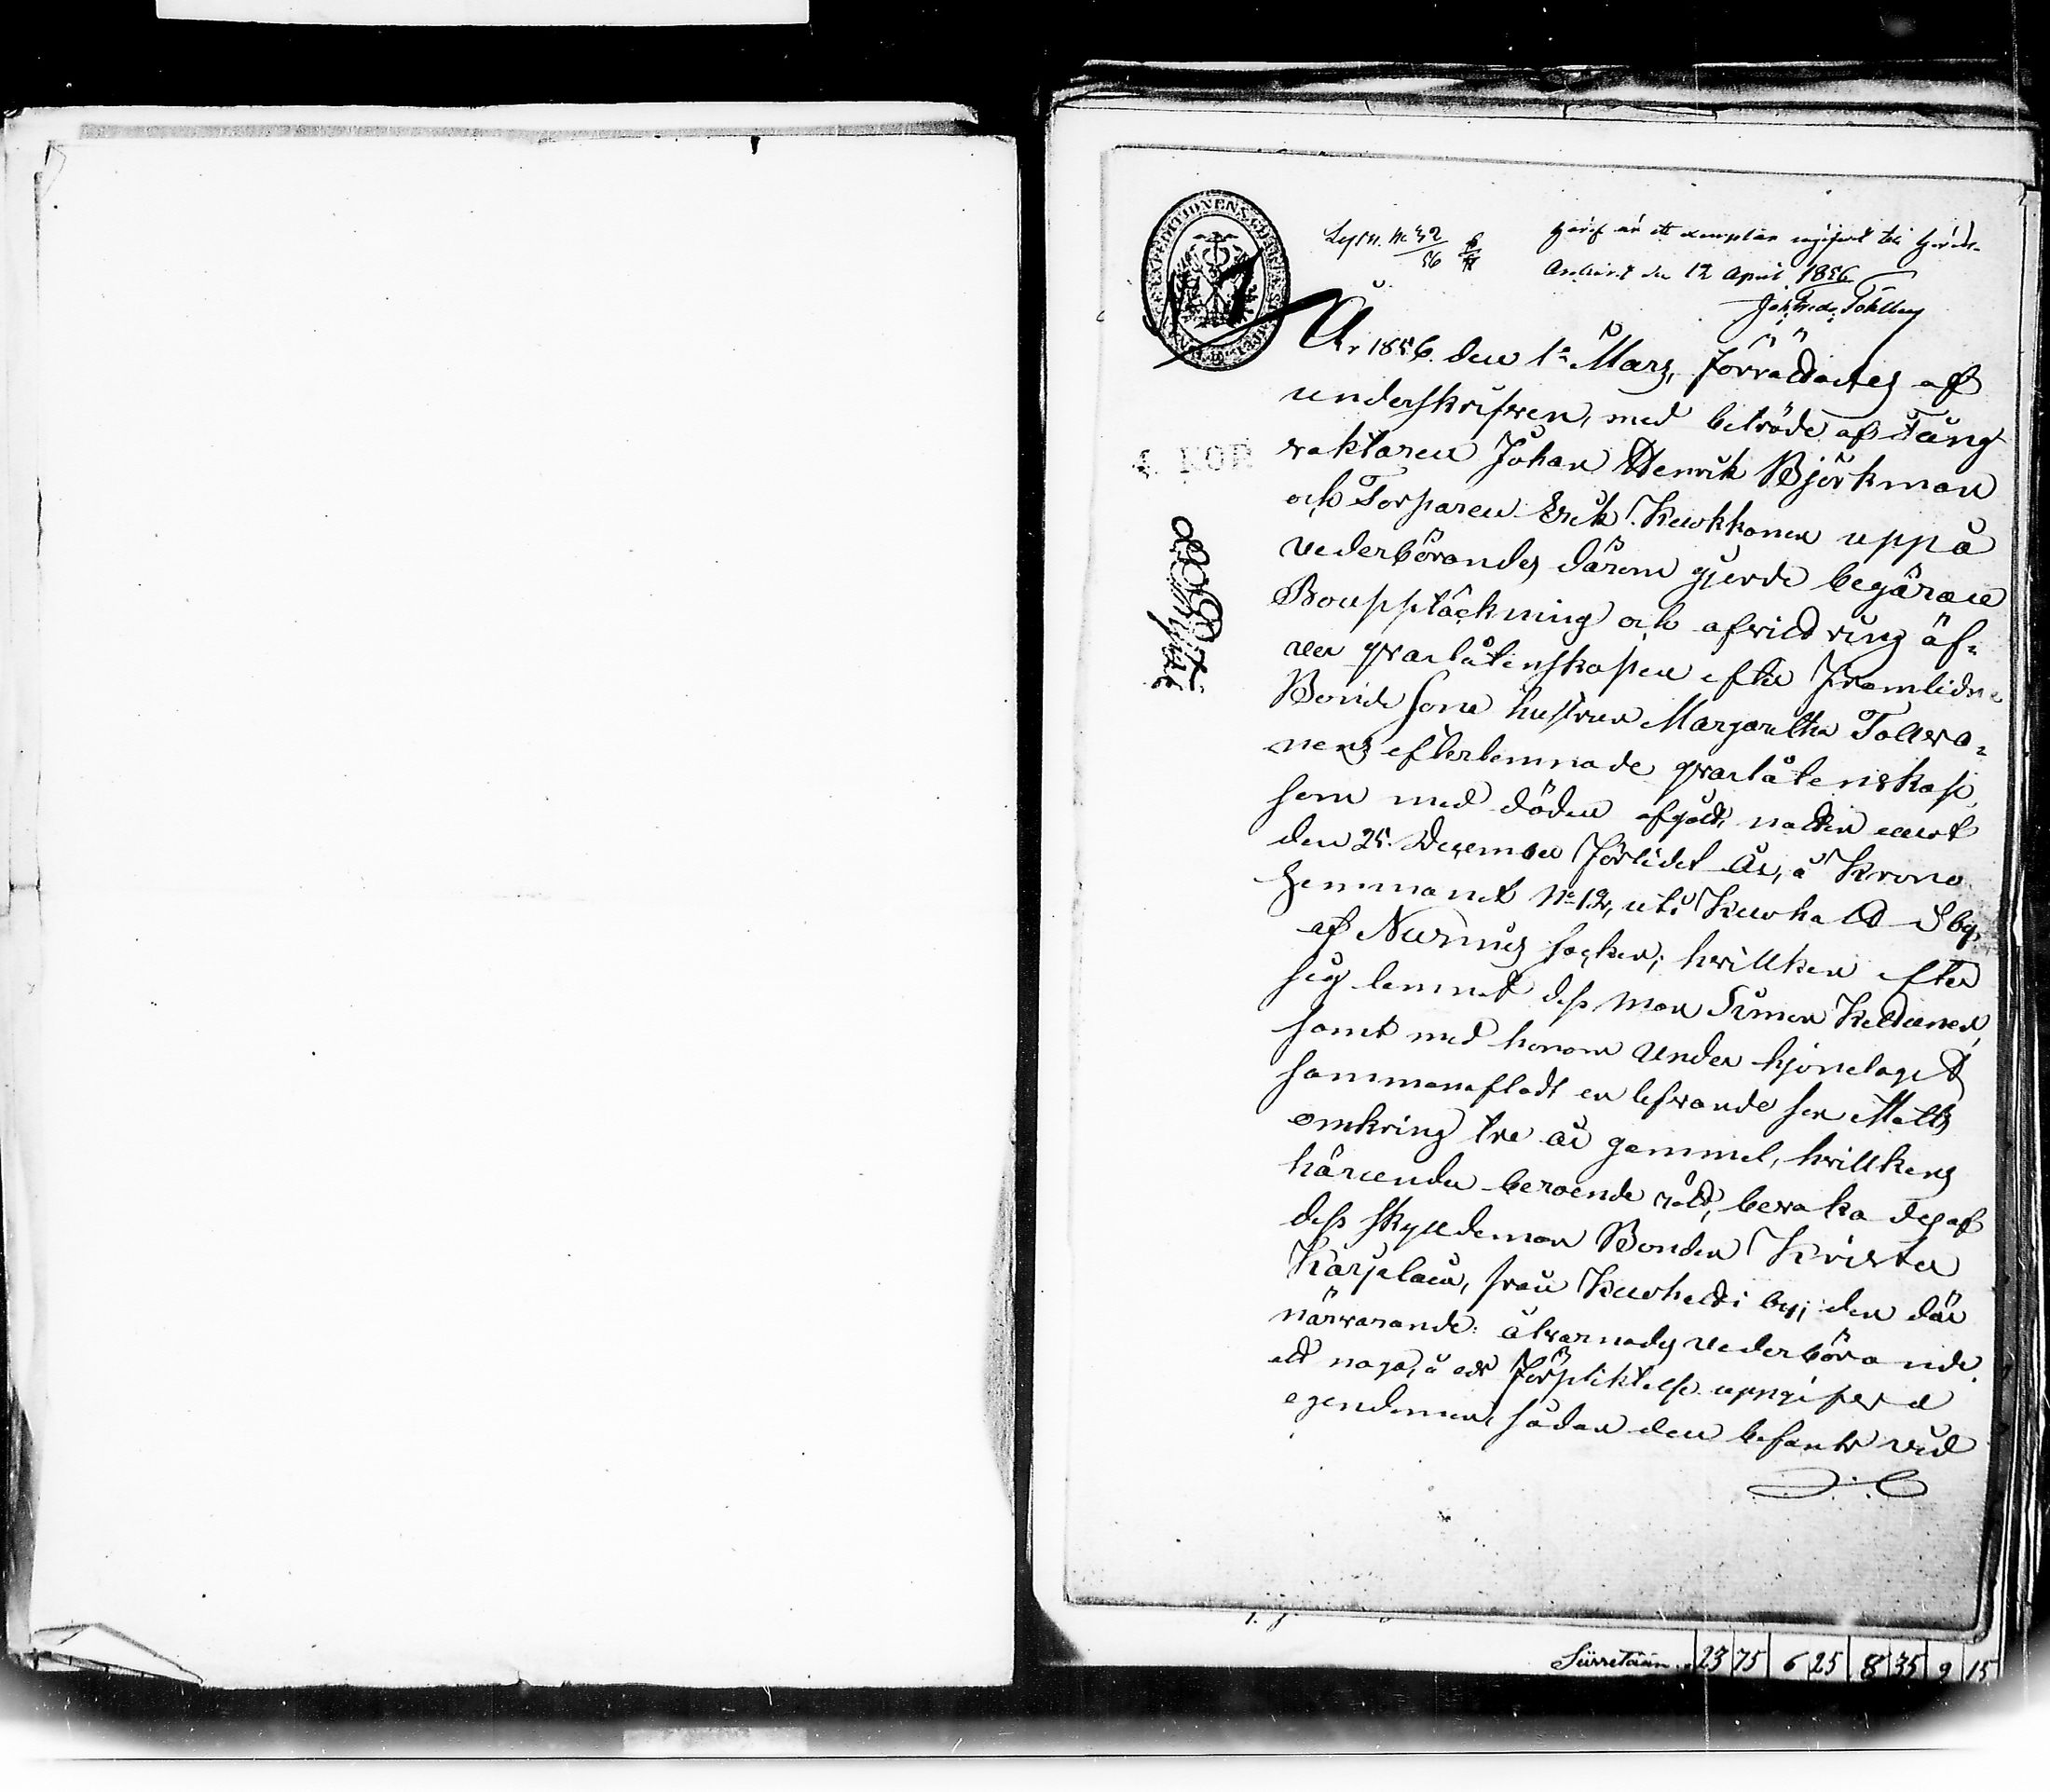 Häraf är ett exemplar ingifvet till Härads-
Archivet den 12 April 1856.
Joh. Fredr. Tohlberg
4. KOP
År 1856. den 1e Mars, förrättades af
underskrifven, med beträde af Fång
vaktaren Johan Henrik Björkman
och Torparen Erik Kuokkonen uppå
vederbörandes därom gjorde begäran
Bouppteckning och afvittring äf-
ver qvarlåtenskapen efter framlidne
Bonde sone hustrun Margaretha Tolwa-
nens efterlemnade qvarlåtenskap
som med döden afgått natten emot
den 25. December förlidet år, å Krono
hemmanet No 12, uti by
af Nurmes socken; hvilken efter
sig lemnat dess man Simon Keltunen,
samt med honom under hjonelaget
sammanaflat en lefvande son Matts
omkring tre år gammel, hvilkens
härunder beroende rätt, bevakades af
dess Bonden Krister
Karjelain, från by; den där
närvarande. åtvarnades vederbörande
att noga, å ed förpliktelse uppgifva
egendomen sådan den befants vid
Siirretään 23 75 6 25 8 35 9 15